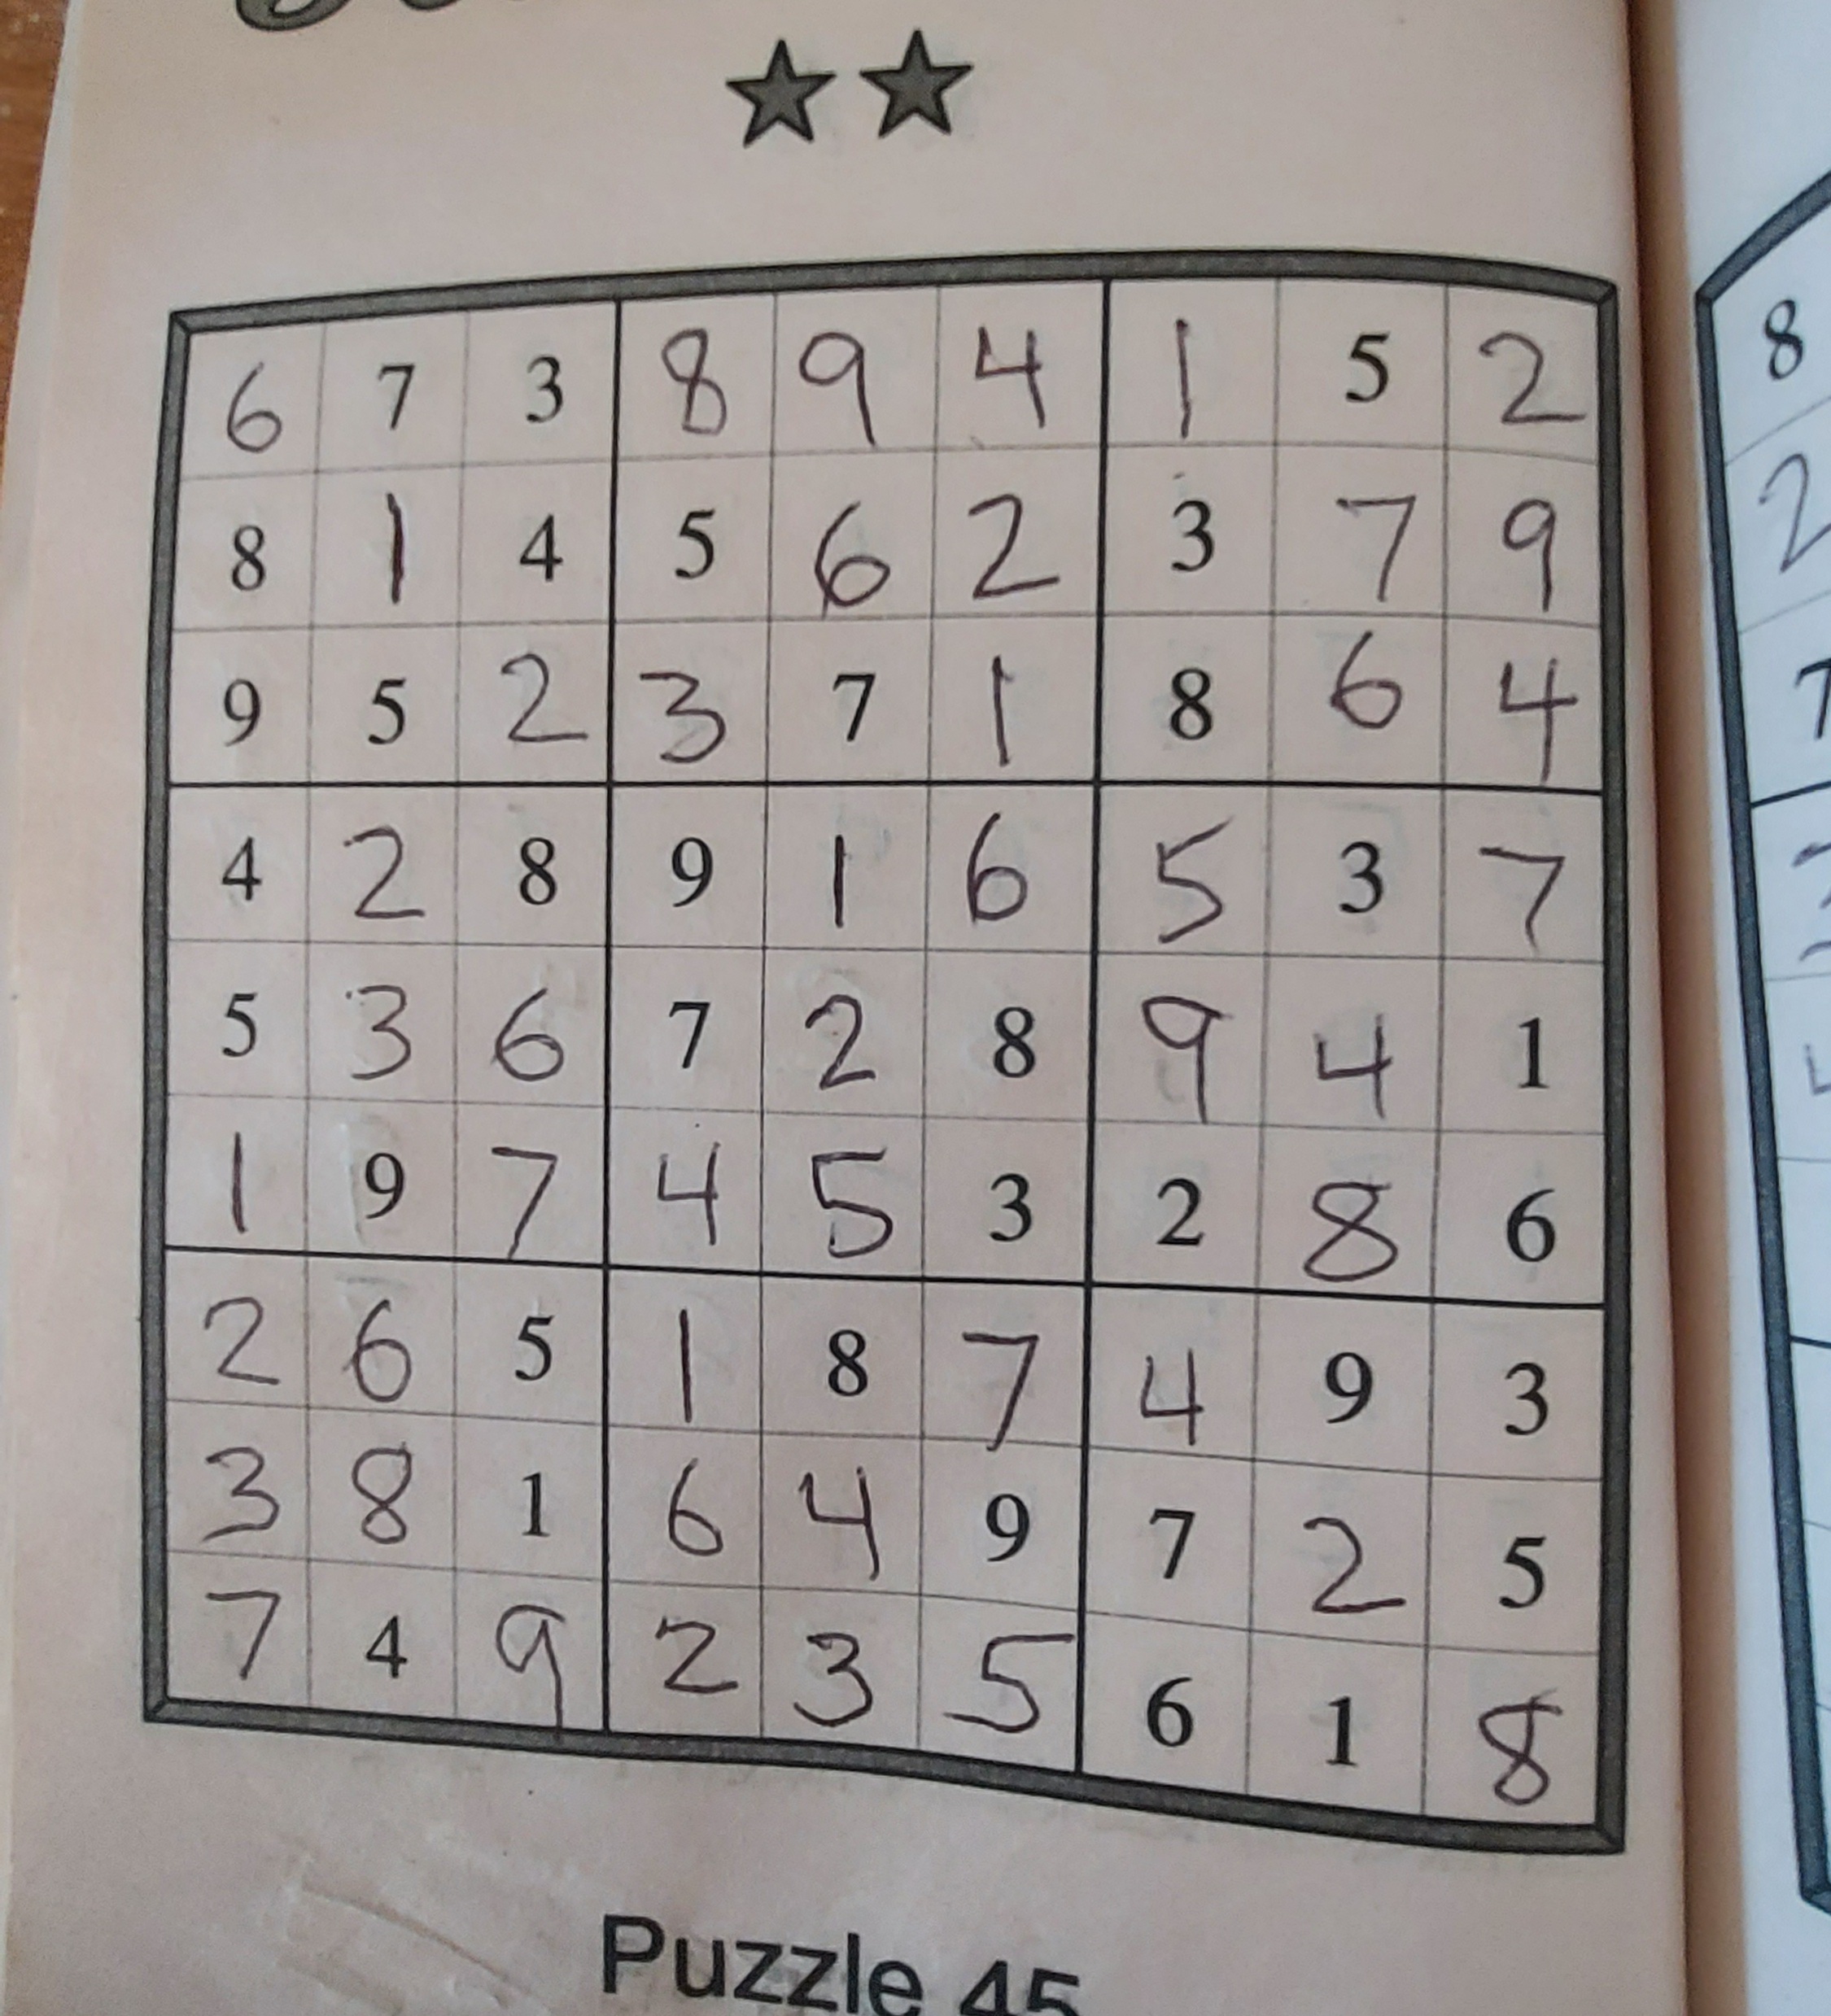 6 7 3 8 9 4 1 5 2
8 1 4 5 6 2 3 7 9
9 5 2 3 7 1 8 6 4
4 2 8 9 1 6 5 3 7
5 3 6 7 2 8 9 4 1
1 9 7 4 5 3 2 8 6
2 6 5 1 8 7 4 9 3
3 8 1 6 4 9 7 2 5
7 4 9 2 3 5 6 1 8
Puzzle 45
8
2
7